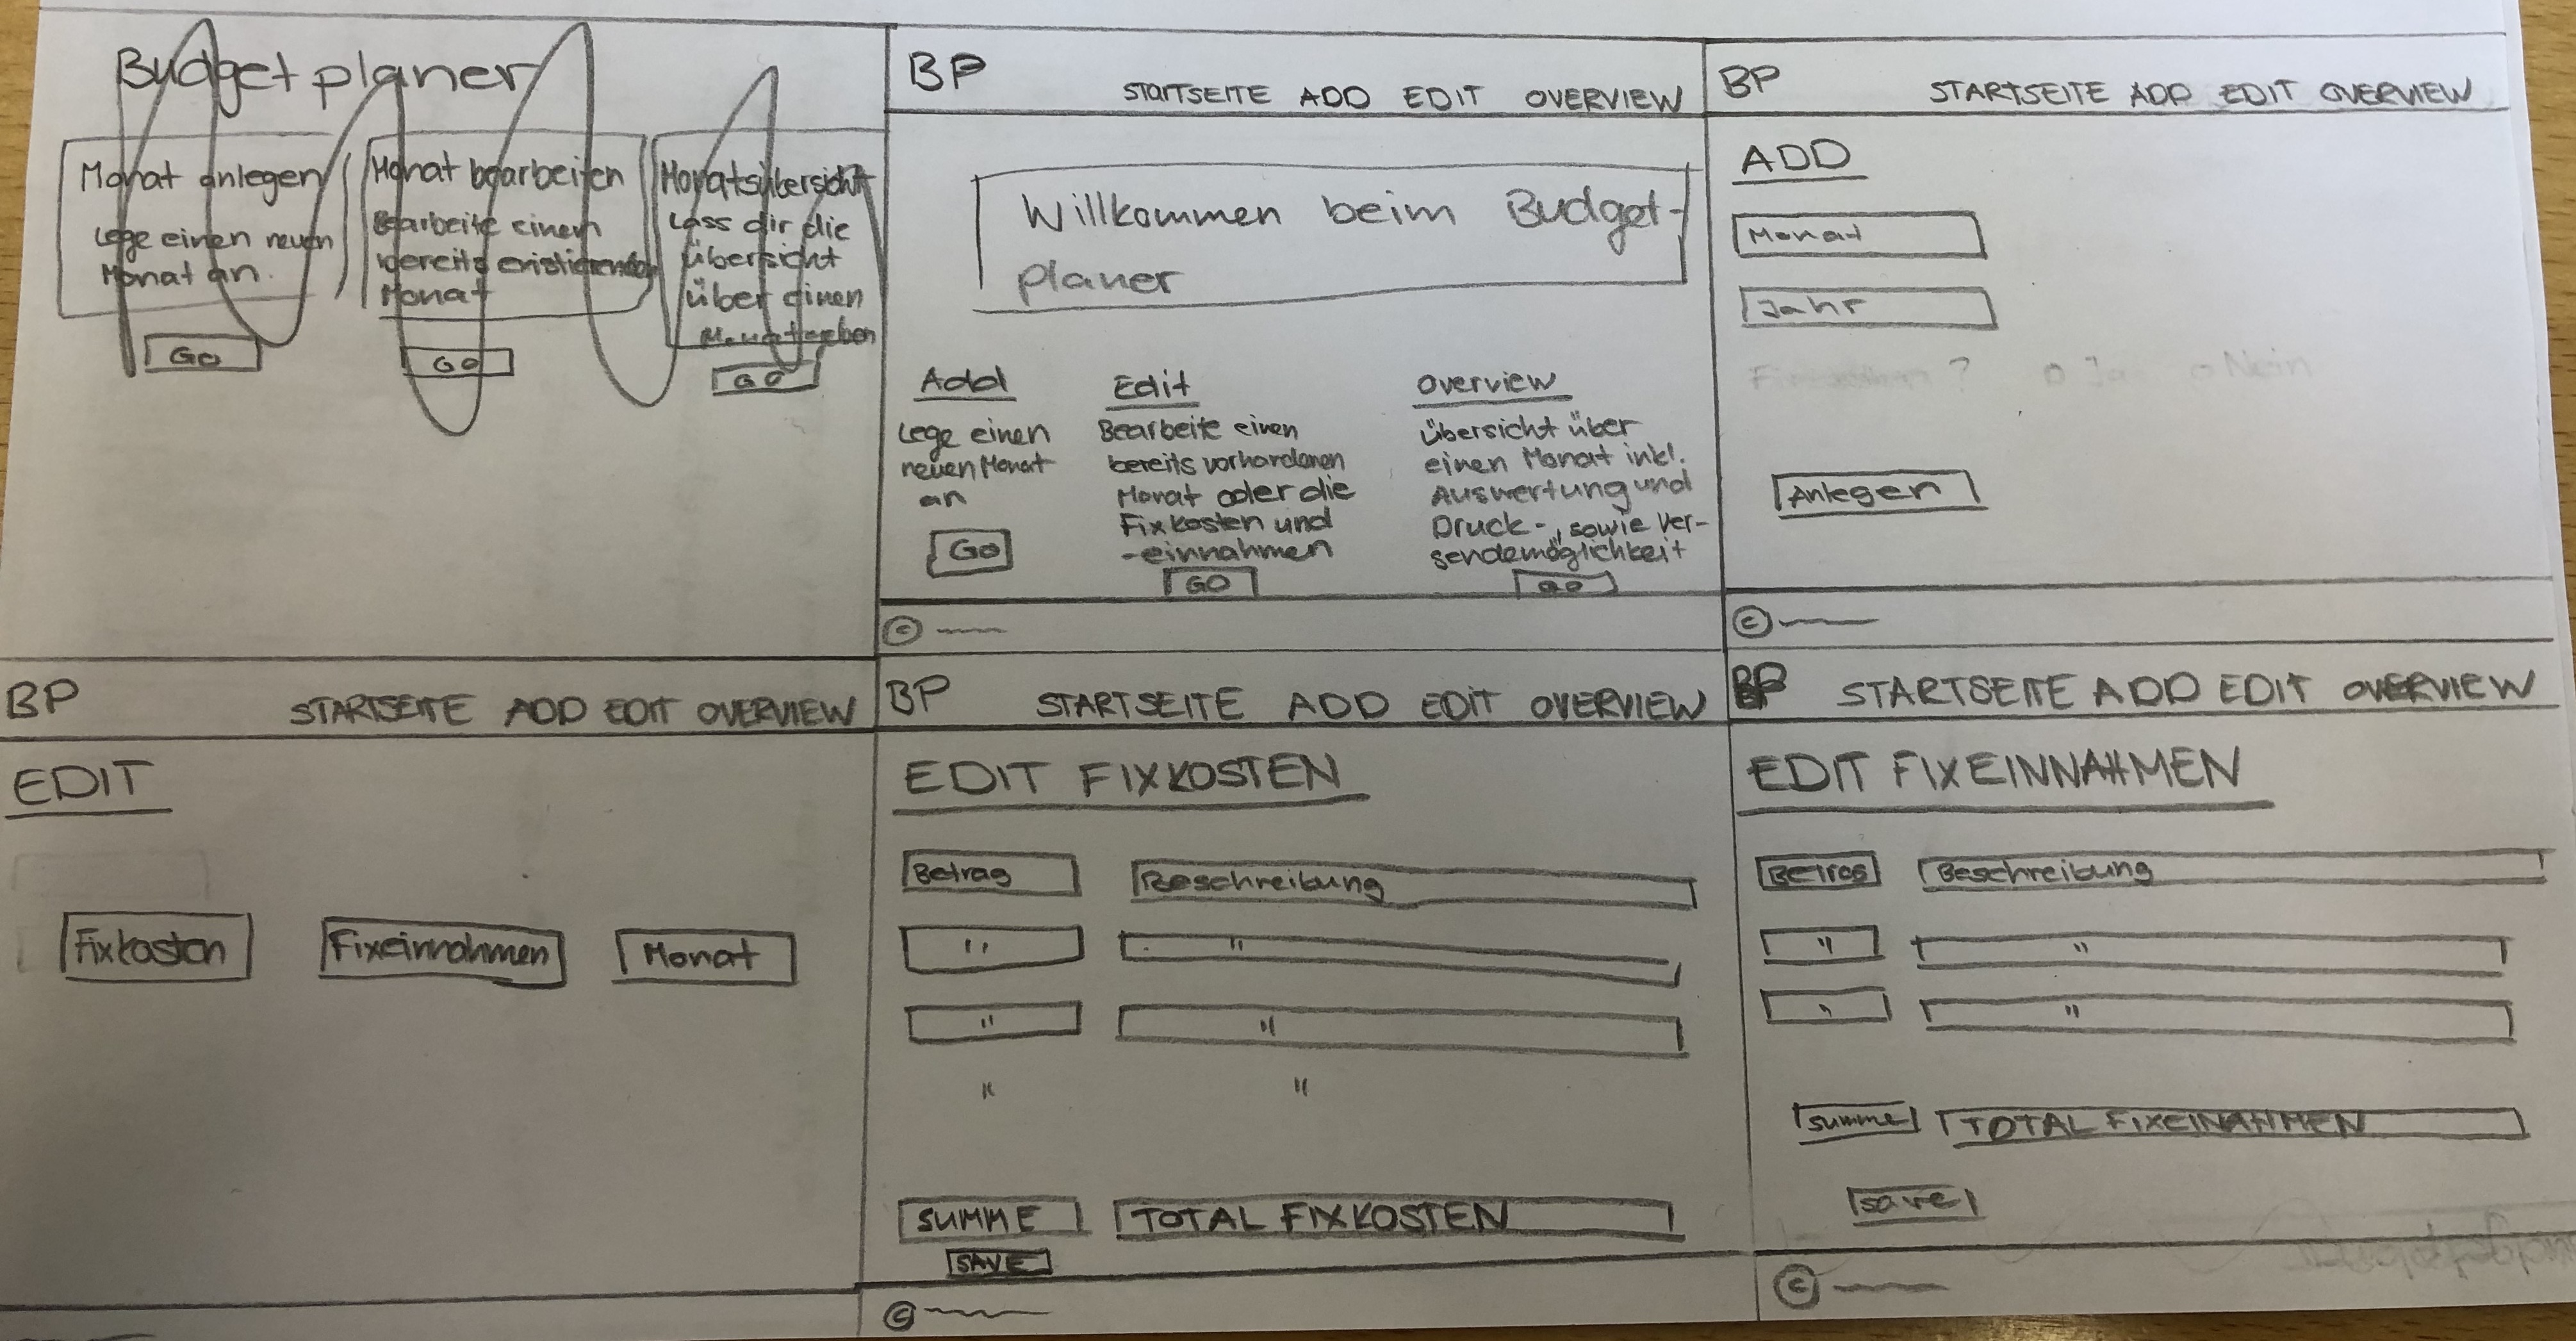 Budgetplaner
Monat anlegen
Lege einen neuen
Monat an.
GO
Monat bearbeiten
Bearbeite einen
bereits existierenden
Monat
GO
Monatsübersicht
Lass dir die
Übersicht
über einen
Monat geben
GO
BP
STARTSEITE ADD EDIT OVERVIEW
Willkommen beim Budget-
planer
Add
Lege einen
neuen Monat
an
GO
Edit
Bearbeite einen
bereits vorhandenen
Monat oder die
Fixkosten und
-einnahmen
GO
Overview
Übersicht über
einen Monat inkl.
Auswertung und
Druck-, sowie Ver-
sendemöglichkeit
GO
©
BP
STARTSEITE ADD EDIT OVERVIEW
ADD
Monat
Jahr
? o Ja o Nein
Anlegen
©
BP
STARTSEITE ADD EDIT OVERVIEW
EDIT
Fixkosten
Fixeinnahmen
Monat
BP
STARTSEITE ADD EDIT OVERVIEW
EDIT FIXKOSTEN
Betrag Beschreibung
" "
" "
" "
SUMME TOTAL FIXKOSTEN
SAVE
©
BP
STARTSEITE ADD EDIT OVERVIEW
EDIT FIXEINNAHMEN
Betrag Beschreibung
" "
" "
Summe TOTAL FIXEINAHMEN
save
©